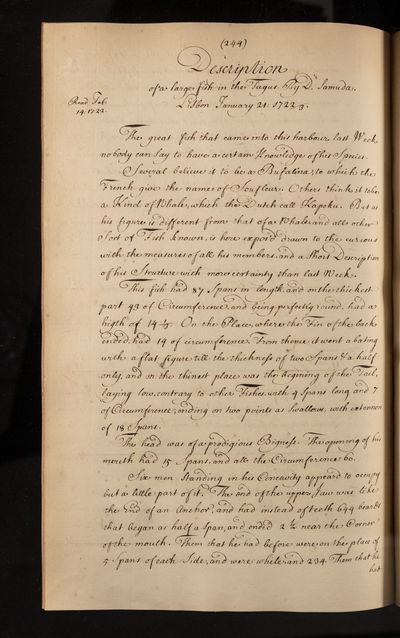 (244)
Description
of a large fish in the Tagus. By Dr. Samuda.
Read Feb.
14. 1722.
Lisbon January 21. 1722/3.
The great fish that came into this harbour, last Week,
nobody can say to have a certain Knowledge of his Species.
Several believe it to be a Bufalina, to which the
French give the name of Soufleur. Others think it to be
a Kind of Whale, which the Dutch call Kapoku. But as
his figure is different from that of a Whale and all other
Sort of Fish known, is here expos'd drawn to the curious
with the measures of all his members, and a short Description
of his Structure with more certainty than last Week.
This fish had 87 Spans in length, and on the thickest
part 43 of Circumference, and being perfectly round, had a
higth of 14 1/3. On the Place, where the Fin of the back
ended, had 19 of circumference. From thence it went abating
with a flat figure till the thickness of two Spans & a half
only, and on the thinest place was the begining of the Tail,
laying low, contrary to other Fishes, with 4 Spans long and 7
of Circumference; ending on two points as Swallows, with extension
of 18 Spans.
The head was of a prodigious Bigness. The opening of his
mouth had 15 Spans, and all the Circumference 60.
Six men standing in his Concavity appear'd to occupy
but a little part of it. The end of the upper Jaw was like
the End of an Anchor, and had instead of teeth 644 beards
that began as half a Span, and ended 2 1/2 near the Corner
of the mouth. Them that he had before were on the place of
5 Spans of each Side, and were white, and 234. Them that he
had